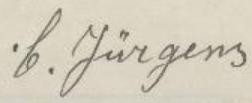 C. Jürgens